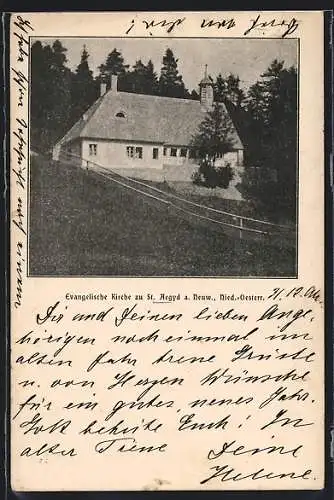 Evangelische Kirche zu St. Aegyd a. Neuw., Nied.-Oesterr.
31. 12.
Dir und Deinen lieben Ange-
hörigen noch einmal im
alten Jahr treue Grüsse
u. von Herzen Wünsche
für ein gutes, neues Jahr.
Gott behüte Euch! In
alter Treue Deine
Helene.